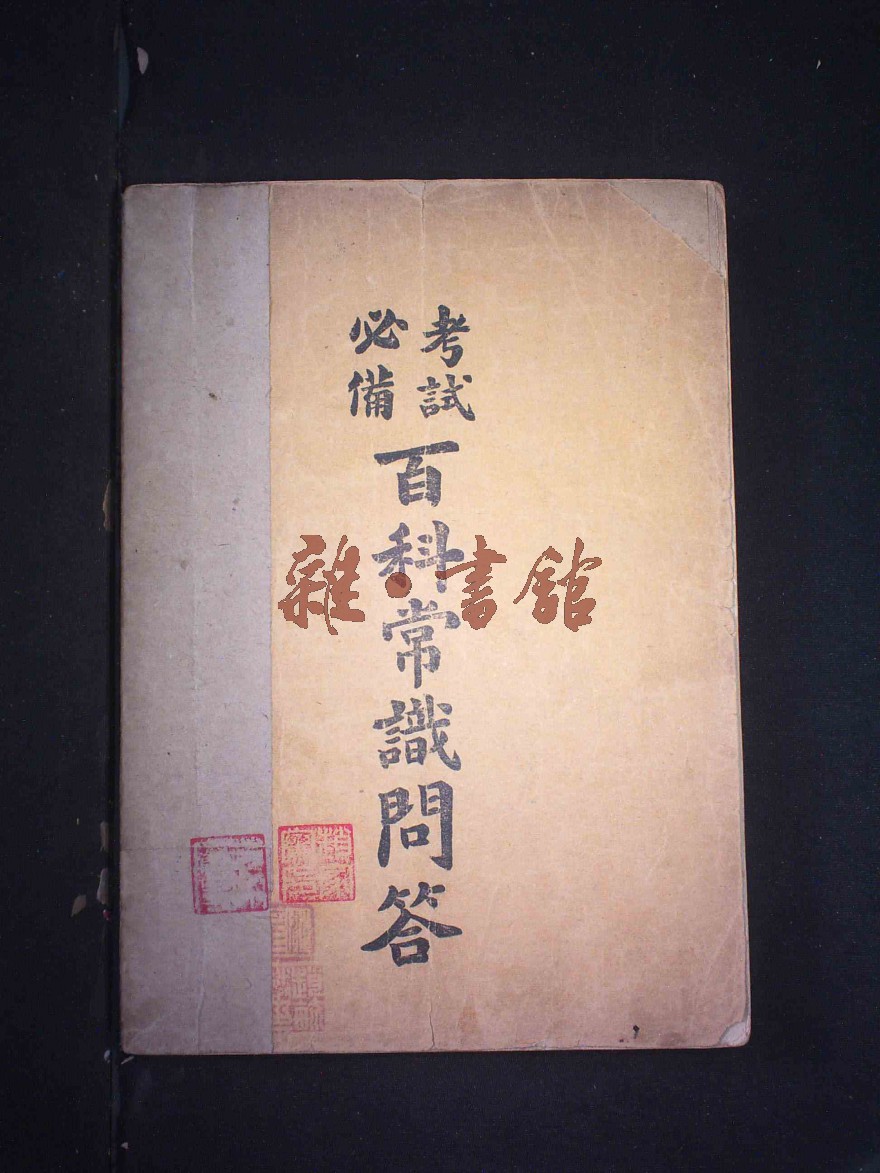 考試
必備
百科常識問答
雜·書館